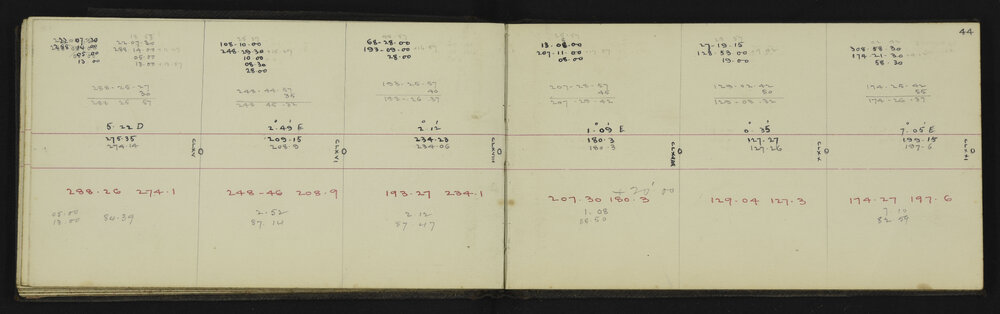 44
108.10.00
248.29.30
10.00
08.30
28.00
248.44.57
35
248.45.32
2°.49' E
209.15
208.9
CLXVI
248-46 208.9
2.52
87.14
22.07.30
05.00
13.00
288.25.27
30
5.22 D
275.35
274.14
CLXV
288.26 274.1
05.00
13.00
84.39
68-28.00
193-09.00
28.00
193-25-57
40
193-26.37
2°.12'
234.23
234.06
193.27 234.1
2.12
87.47
13.08.00
207-11.00
08.00
207-28-57
45
207-29.42
1°.09' E
180.3
180.3
+ 20' 00
207.30 180.3
1.08
27-19.15
128.53.00
19.00
129-02-42
50
129-03.32
0°.35'
127.27
127.26
CLXX
129.04 127.3
308.58.30
174.21.30
58.30
174-25-42
55
174-26.37
7°.05' E
199.15
197.6
CLXXI
174-27 197.6
7.10
82.59